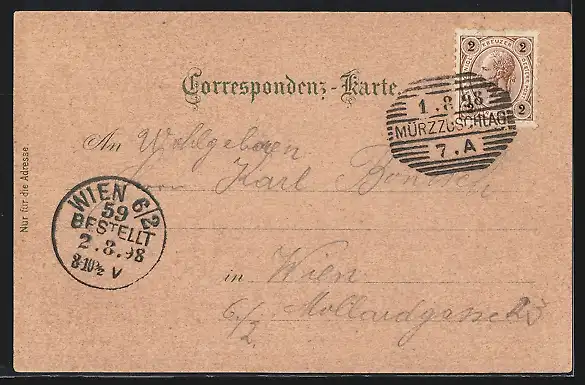 2 KREUZER 2
2 2
Correspondenz-Karte.
1.8.98
MÜRZZUSCHLAG
7.A
An Wohlgeboren
Herrn Karl
Nur für die Adresse
WIEN 6/2
59
BESTELLT
2.8.98
8-10½ V
in Wien
6./2. Mollardgasse